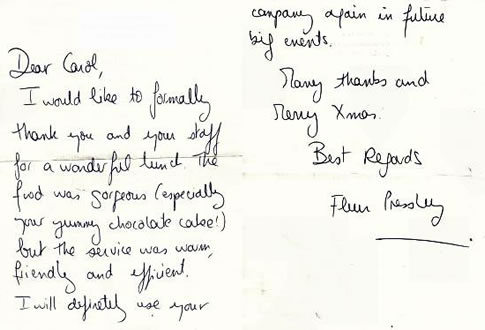 Dear Carol,
I would like to formally
thank you and your staff
for a wonderful lunch. The
food was gorgeous (especially
your yummy chocolate cake!)
but the service was warm,
friendly and efficient.
I will definetely use your
company again in future
big events.
Many thanks and
Merry Xmas.
Best Regards
Fleur Pressley